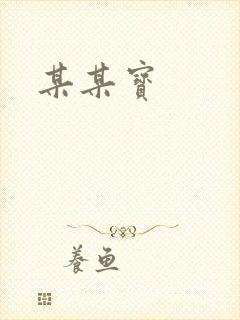 某某寶
養魚